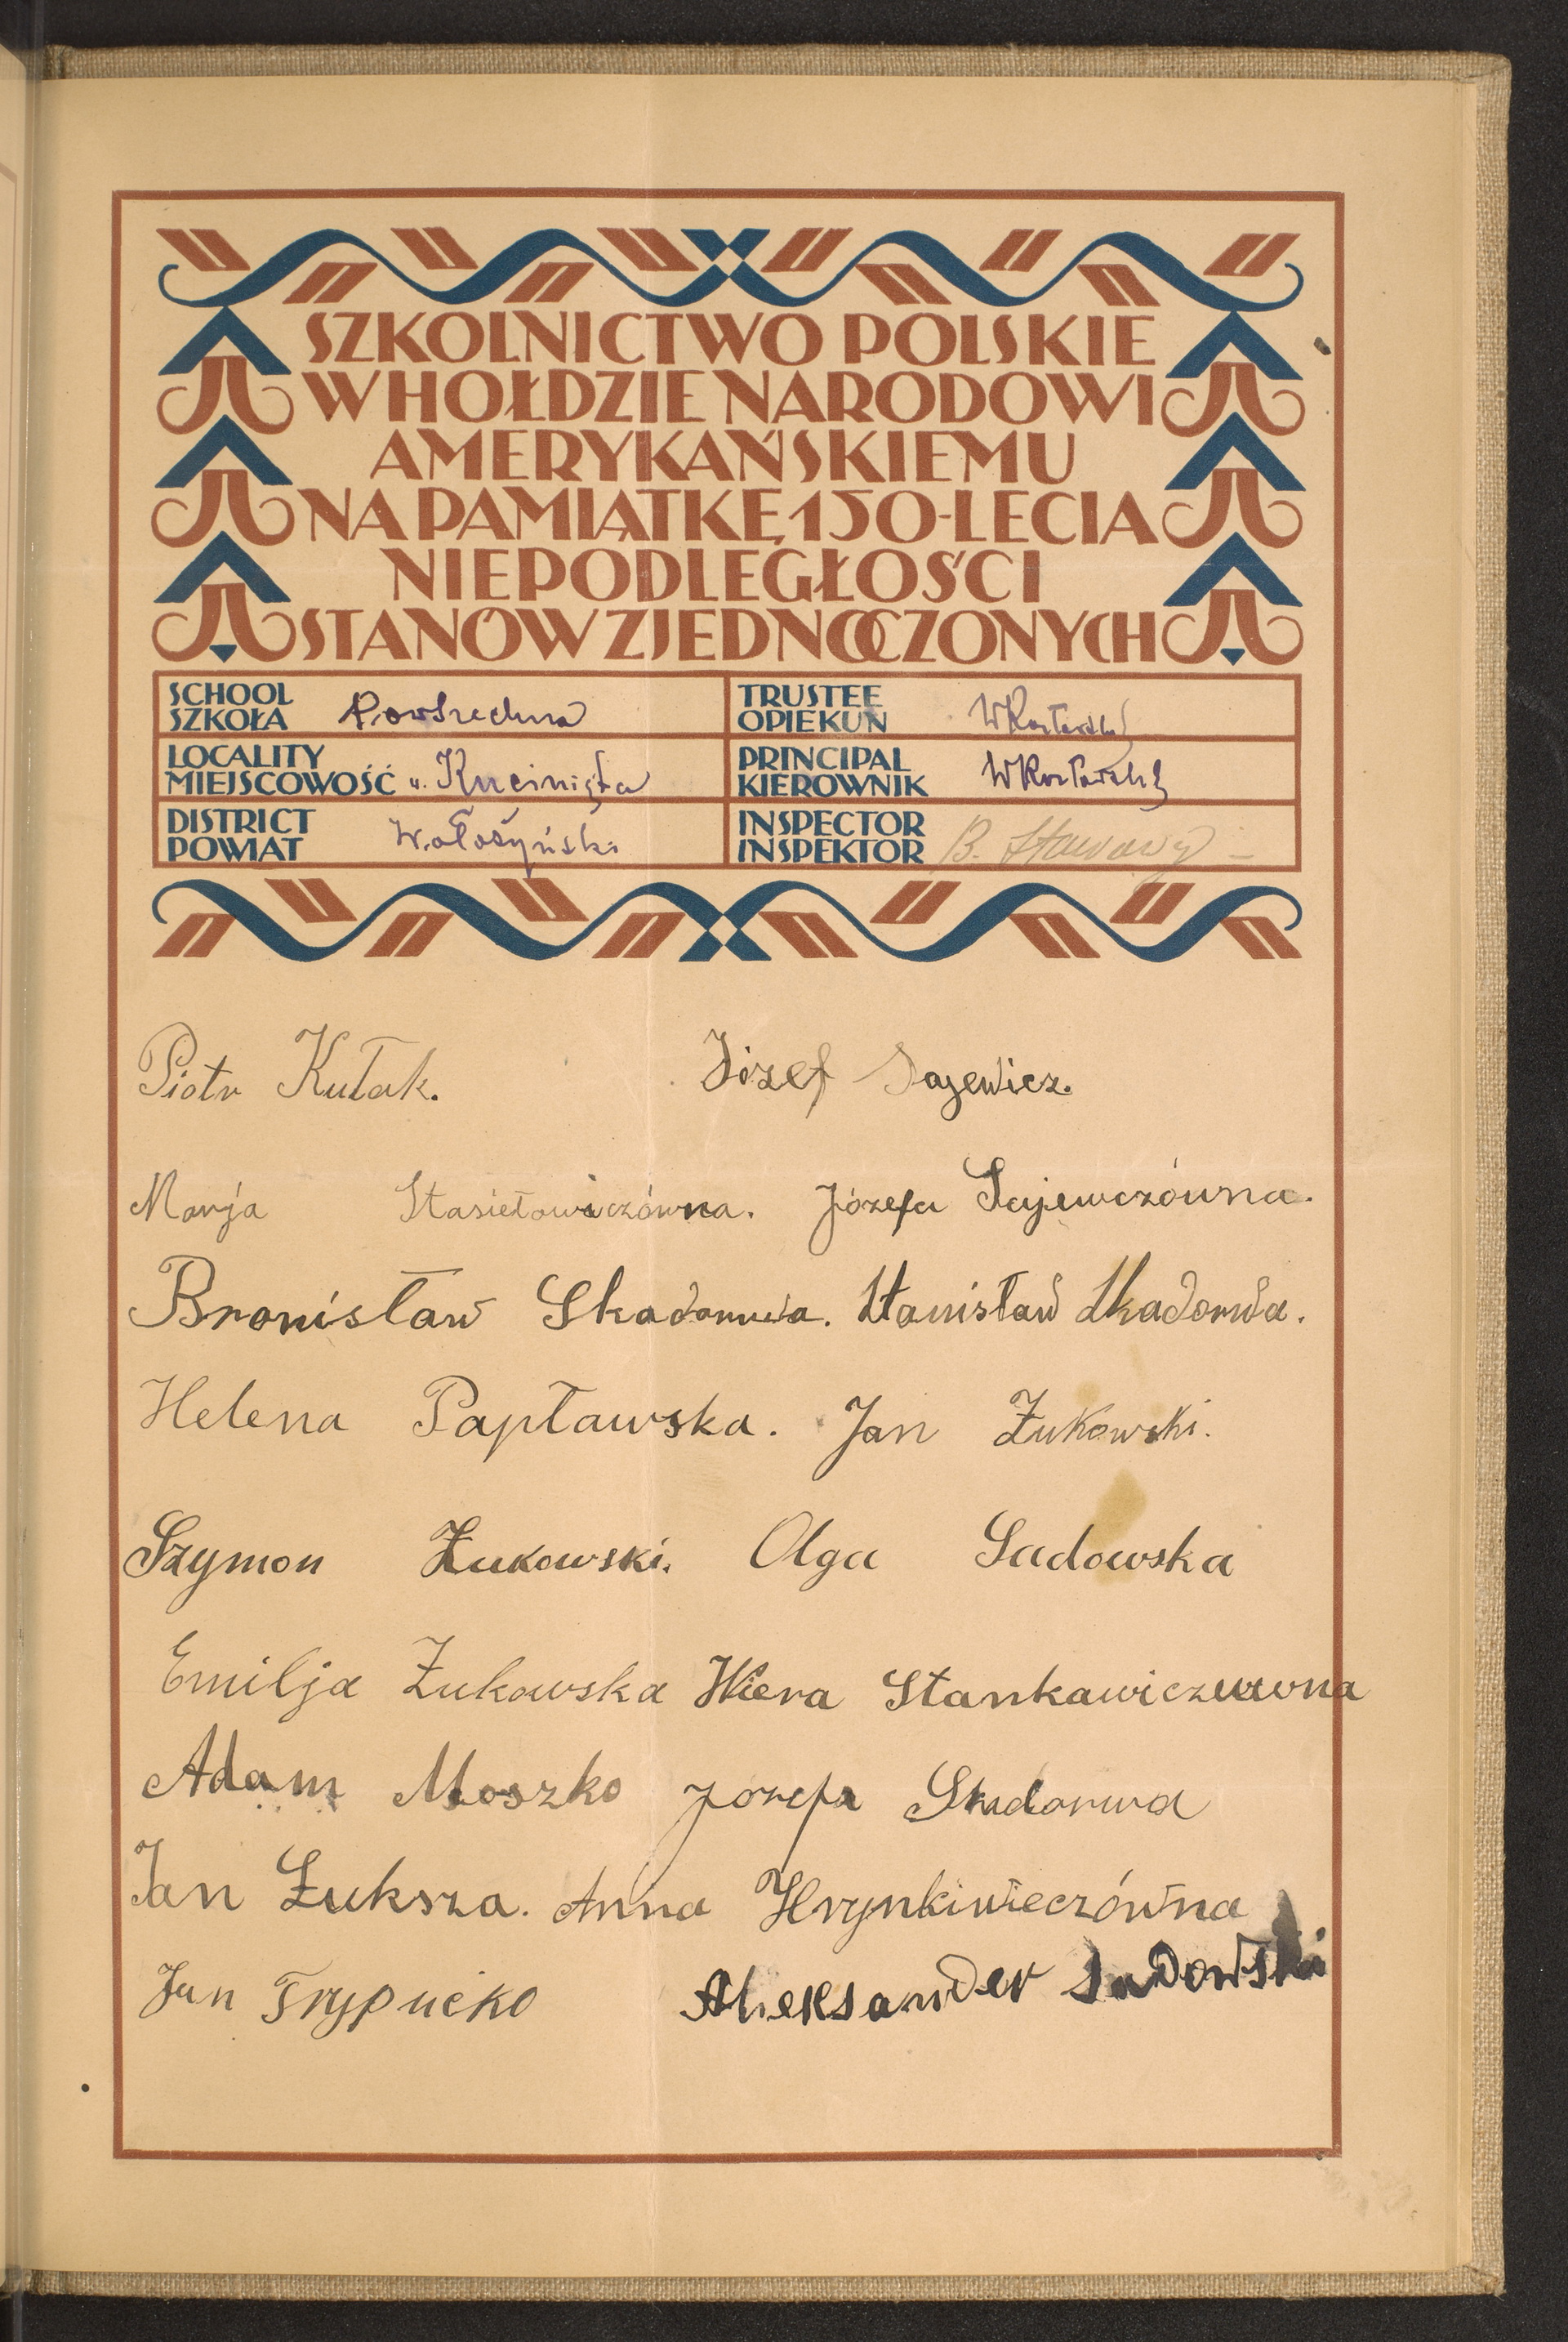 SZKOLNICTWO POLSKIE
W HOŁDZIE NARODOWI
AMERYKAŃSKIEMU
NA PAMIĄTKĘ 150-LECIA
NIEPODLEGŁOŚCI
STANÓW ZJEDNOCZONYCH
SCHOOL
SZKOŁA Powszechna
TRUSTEE
OPIEKUN
LOCALITY
MIEJSCOWOŚĆ
PRINCIPAL
KIEROWNIK
DISTRICT
POWIAT Wołożyński
INSPECTOR
INSPEKTOR B.
Piotr Kułak. Józef Sajewicz.
Marja Stasiełowiczówna. Józefa Sajewczówna.
Bronisław Skadorwa. Stanisław Skadorwa.
Helena Papławska. Jan Żukowski.
Szymon Żukowski. Olga Sadowska
Emilja Żukowska Wiera Stankawiczuwna
Adam Moszko Józefa Skadorwa
Jan Łuksza. Anna Hrynkiwieczówna
Jan Trypucko Aleksander Sadowski